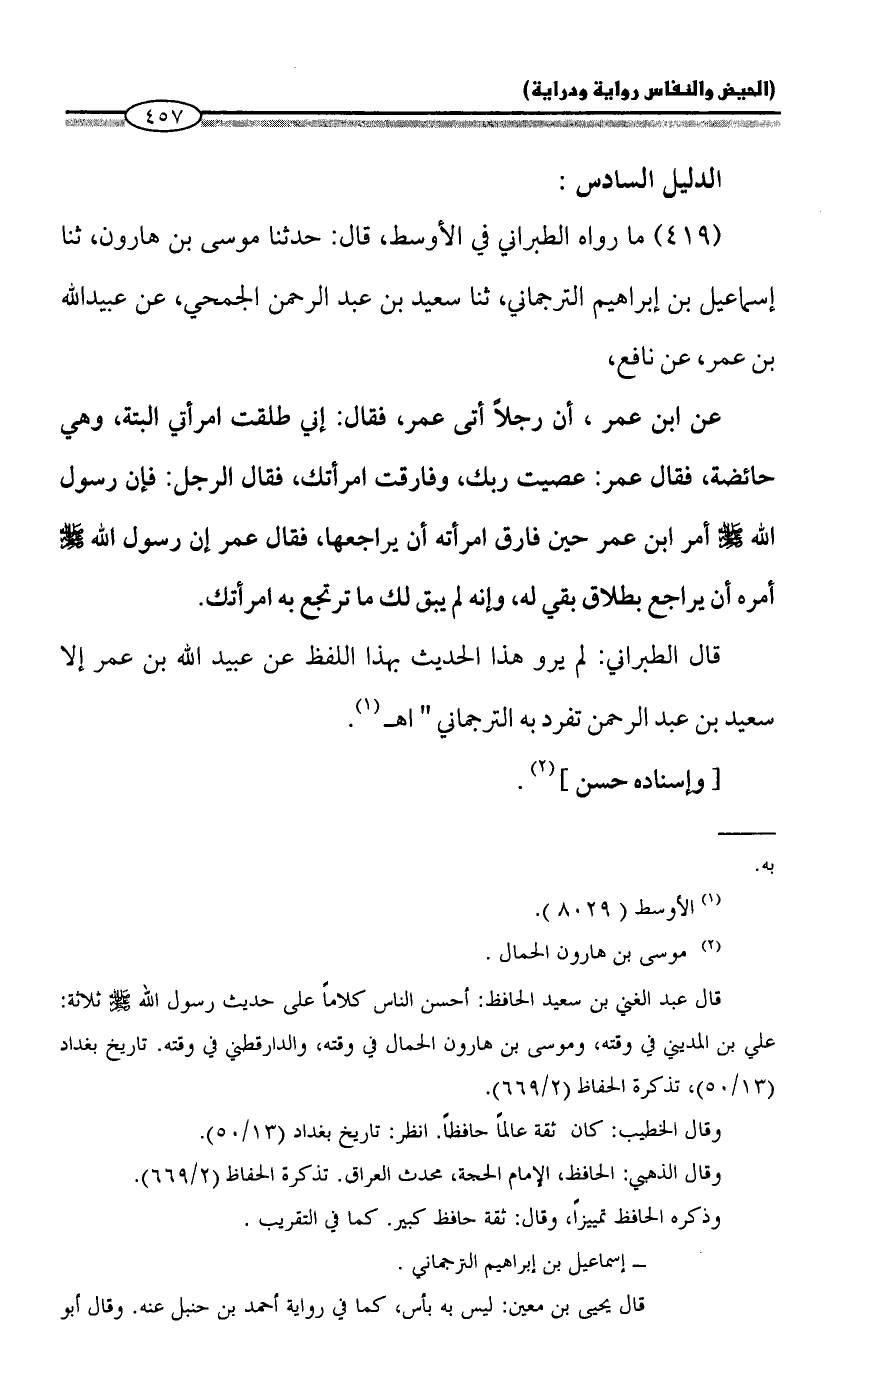 (الحيض والنفاس رواية ودراية)
٤٥٧
الدليل السادس :
(٤١٩) ما رواه الطبراني في الأوسط، قال: حدثنا موسى بن هارون، ثنا
إسماعيل بن إبراهيم الترجماني، ثنا سعيد بن عبد الرحمن الجمحي، عن عبيدالله
بن عمر، عن نافع،
عن ابن عمر ، أن رجلاً أتى عمر، فقال: إني طلقت امرأتي البتة، وهي
حائضة، فقال عمر: عصيت ربك، وفارقت امرأتك، فقال الرجل: فإن رسول
الله ﷺ أمر ابن عمر حين فارق امرأته أن يراجعها، فقال عمر إن رسول الله ﷺ
أمره أن يراجع بطلاق بقي له، وإنه لم يبق لك ما ترتجع به امرأتك.
قال الطبراني: لم يرو هذا الحديث بهذا اللفظ عن عبيد الله بن عمر إلا
سعيد بن عبد الرحمن تفرد به الترجماني " اهـ (١).
[ وإسناده حسن ](٢) .
به.
(١) الأوسط ( ٨٠٢٩ ).
(٢) موسى بن هارون الحمال .
قال عبد الغني بن سعيد الحافظ: أحسن الناس كلاماً على حديث رسول الله ﷺ ثلاثة:
علي بن المديني في وقته، وموسى بن هارون الحمال في وقته، والدارقطني في وقته. تاريخ بغداد
(٥٠/١٣)، تذكرة الحفاظ (٦٦٩/٢).
وقال الخطيب: كان ثقة عالماً حافظاً. انظر: تاريخ بغداد (٥٠/١٣).
وقال الذهبي: الحافظ، الإمام الحجة، محدث العراق. تذكرة الحفاظ (٦٦٩/٢).
وذكره الحافظ تمييزاً، وقال: ثقة حافظ كبير. كما في التقريب .
ـ إسماعيل بن إبراهيم الترجماني .
قال يحيى بن معين: ليس به بأس، كما في رواية أحمد بن حنبل عنه. وقال أبو